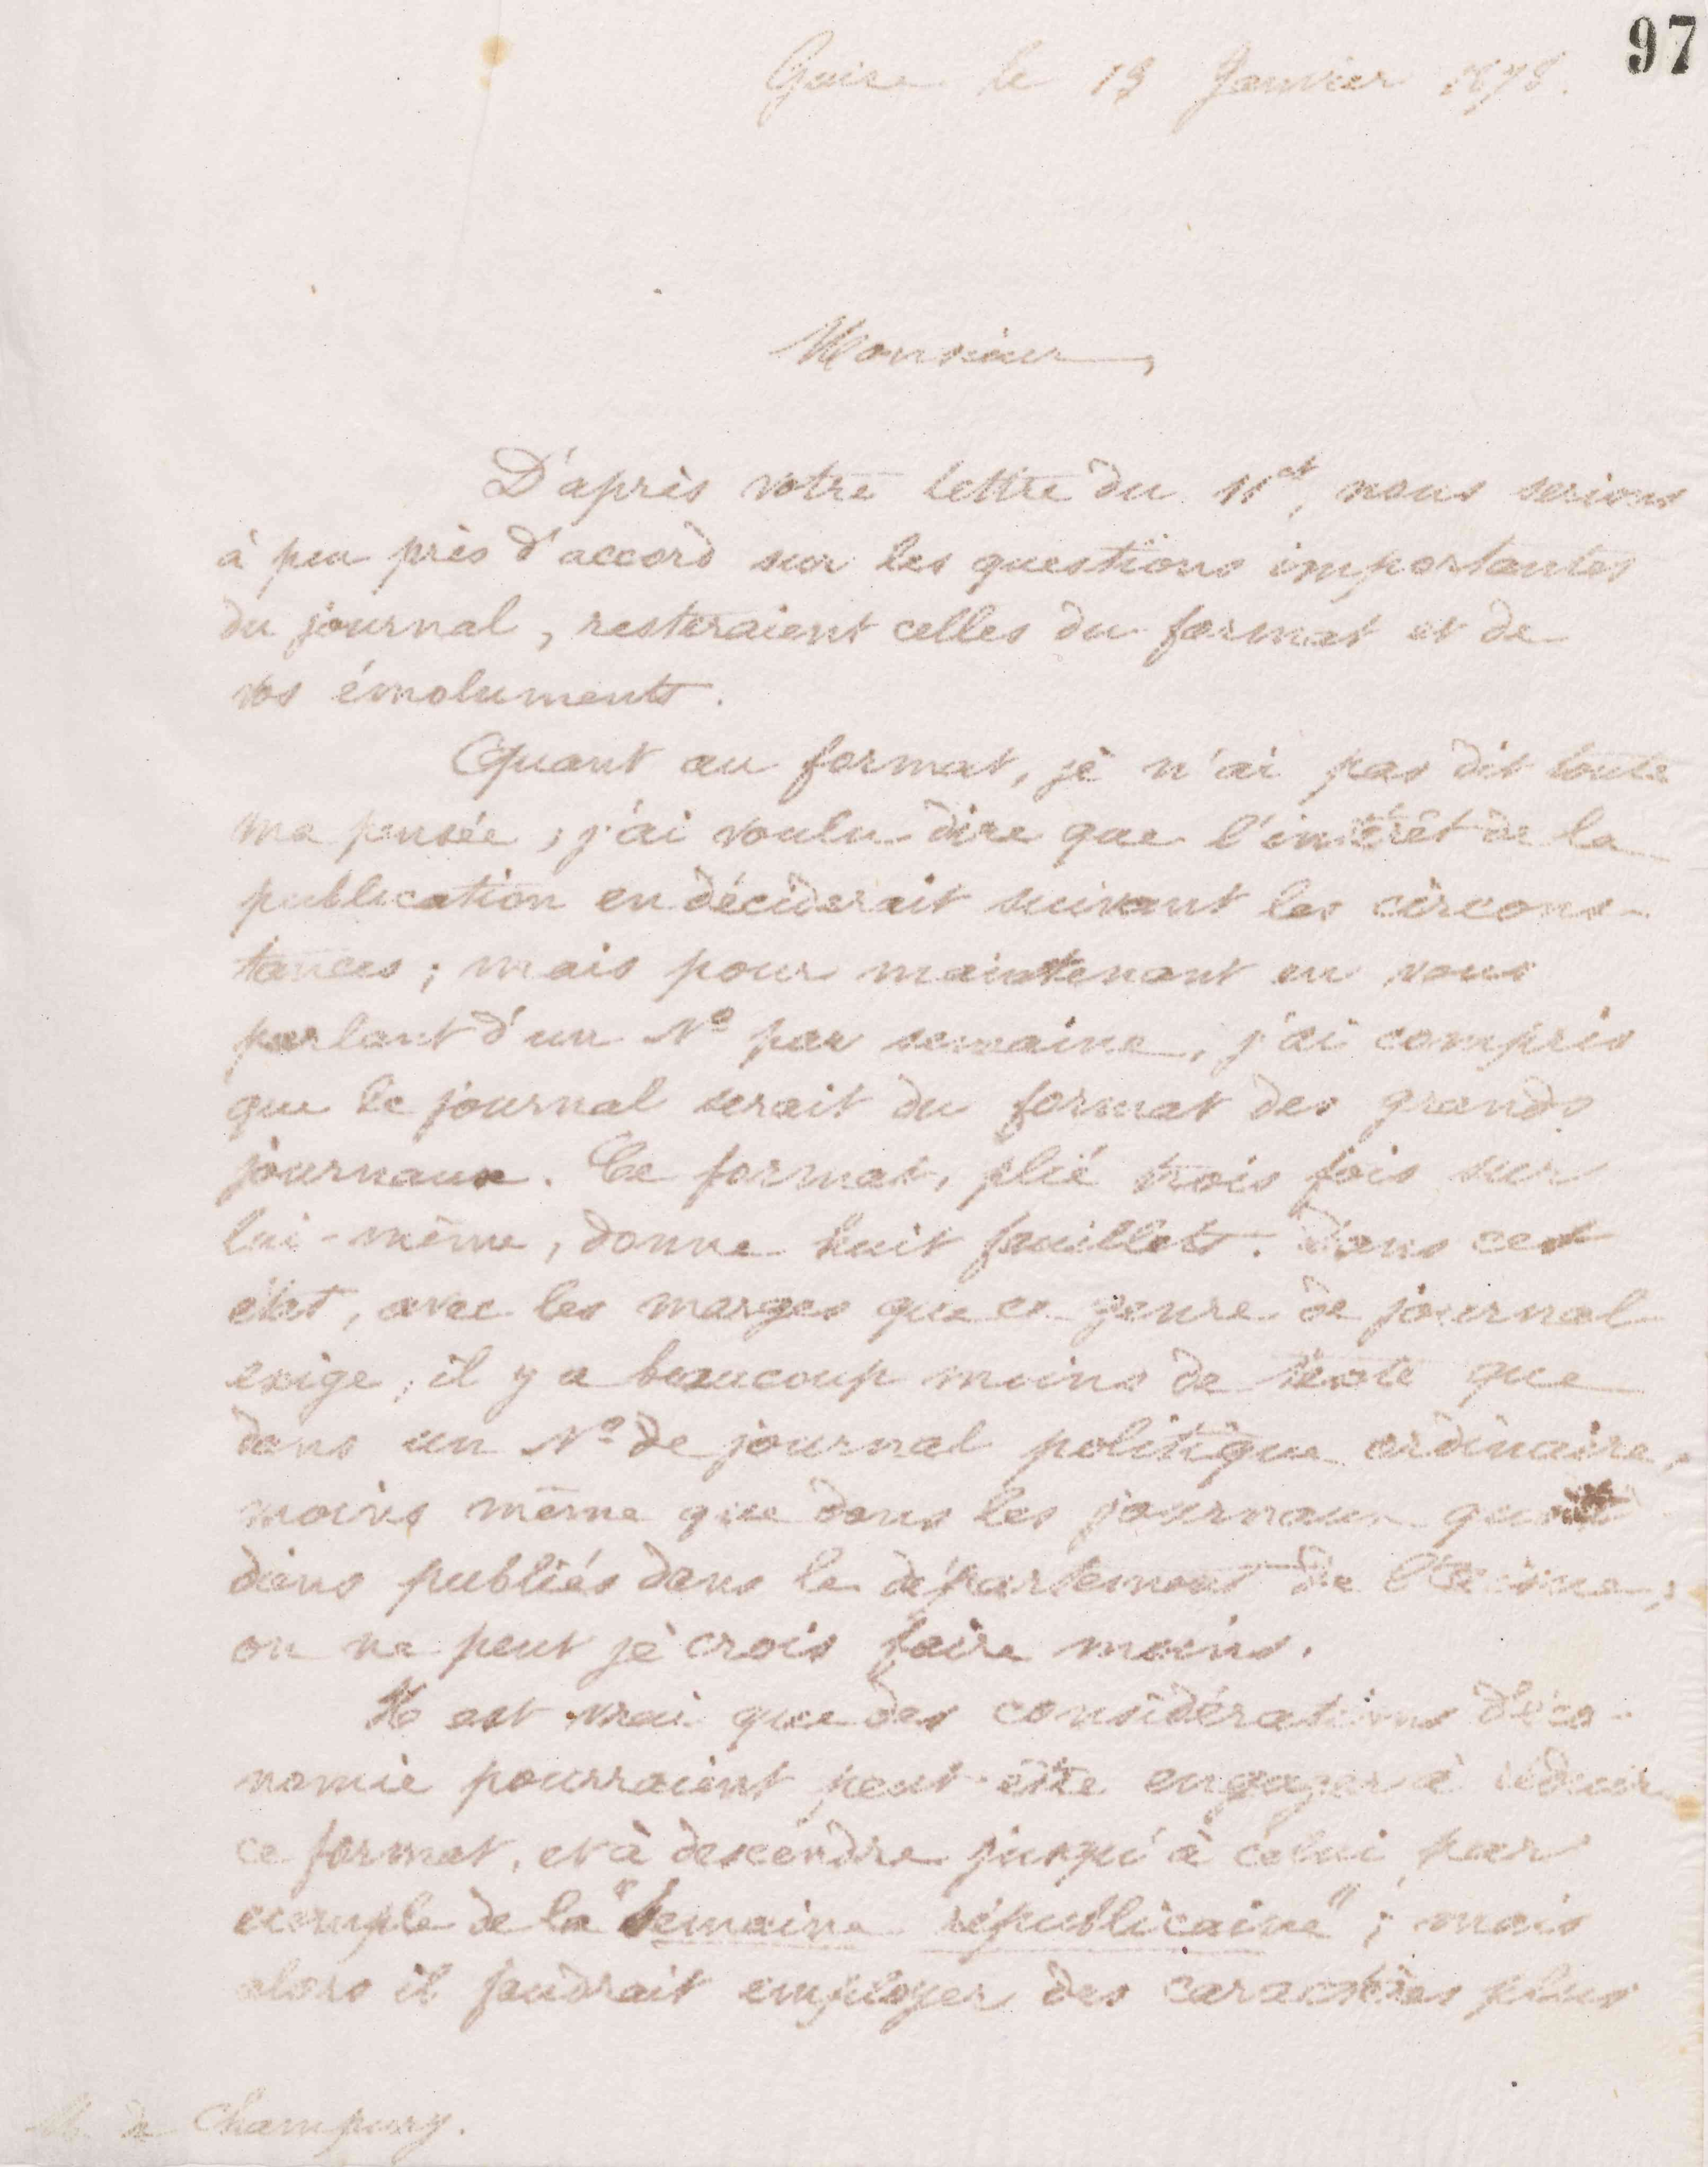 97
Guise le 13 Janvier 1878.
Monsieur,
D'après votre lettre du 11 ct, nous serions
à peu près d'accord sur les questions importantes
du journal, resteraient celles du format et de
vos émoluments.
Quant au format, je n'ai pas dit toute
ma pensée, j'ai voulu dire que l'intérêt de la
publication en déciderait suivant les circons-
tances ; mais pour maintenant en vous
parlant d'un No par semaine, j'ai compris
que le journal serait du format des grands
journaux. Ce format, plié trois fois sur
lui-même, donne huit feuillets. Dans cet
état, avec les marges que ce genre de journal
exige, il y a beaucoup moins de texte que
dans un No de journal politique ordinaire,
moins même que dans les journaux quoti
diens publiés dans le département de l'Aisne ;
on ne peut je crois faire moins.
Il est vrai que des considérations d'éco-
nomie pourraient peut-être engager à réduire
ce format, et à descendre jusqu'à celui par
exemple de la "Semaine républicaine" ; mais
alors il faudrait employer des caractères plus
M. de Champury.